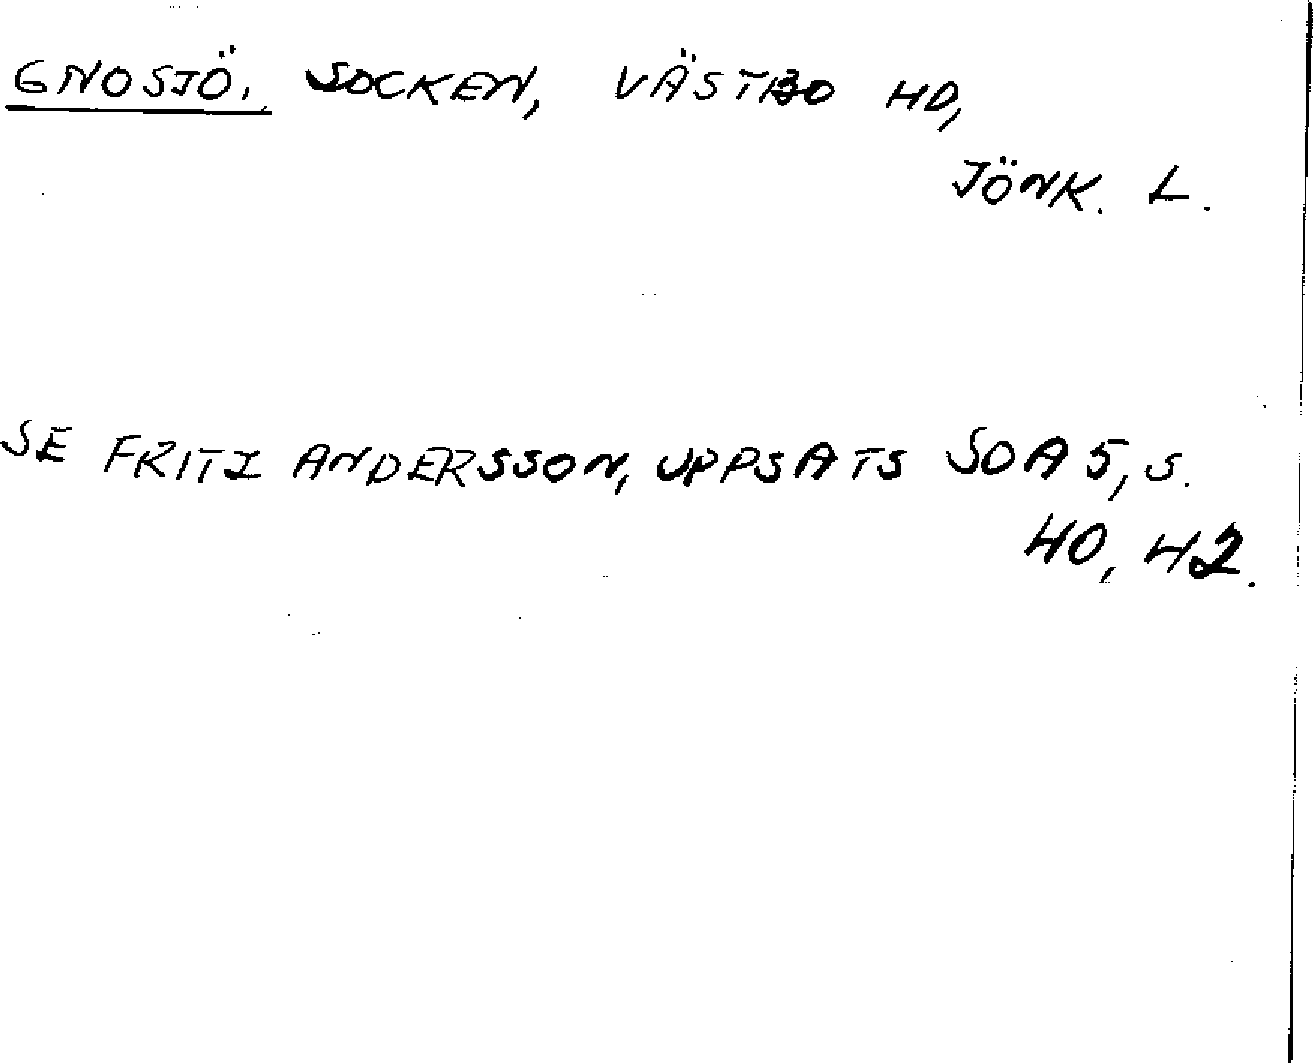 GNOSJÖ, SOCKEN, VÄSTBO HD,
JÖNK. L.
SE FRITZ ANDERSSON, UPPSATS SOA 5, S.
40, 42.